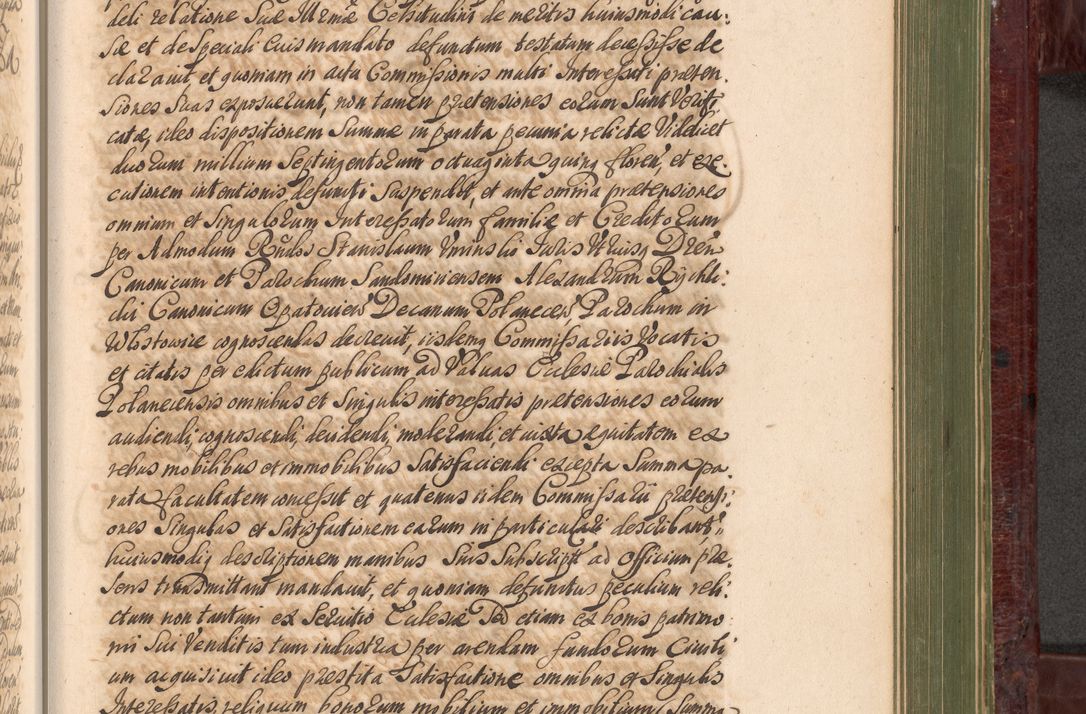 deli relatione Suæ Illrmæ Celsitudinis de meritis huiusmodi cau-
sæ et de speciali Cuius mandato defunctum testatum decessisse de
claravit, et quoniam in actu Commissionis multi Interessati præten-
siones suas exposuerunt, non tamen prætensiones eorum sunt Verifi-
catæ, ideo dispositionem Summæ in parata pecunia relictæ Videlicet
duorum millium Septingentorum octuaginta quinq floren, et exe-
cutionem intentionis defuncti suspendit, et ante omnia prætensiones
omnium et Singulorum Interessatorum familiæ et Creditorum
per Admodum Rndos Stanislaum Juris Utriusq Dren
Canonicum et Parochum Sandomiriensem Alexandrum Rychli-
cki Canonicum Opatovien Decanum Polanecen Parochum in
Wlostowice cognoscendas decrevit, iisdemq Commissariis Vocatis
et citatis per edictum publicum ad Valvas Ecclesiæ Parochialis
Polanecensis omnibus et singulis interessatis prætensiones eorum
audiendi, cognoscendi, decidendi, moderandi, et iuxta æquitatem ex
rebus mobilibus et immobilibus satisfaciendi excepta Summa pa-
rata facultatem concessit et quatenus iidem Commissarii prætensi-
ones Singulas et Satisfactionem earum in particulari describant
huiusmodiq descriptionem manibus Suis Subscript ad Officium præ-
sens transmittant mandavit, et quoniam defunctus peculium reli-
ctum non tantum ex Servitio Ecclesiæ Sed etiam ex bonis patrimo-
nii Sui Venditis tum industria per arendam fundorum Civili
um acquisivit ideo præstita Satisfactione omnibus et Singulis
Interessatis, reliquum bonorum mobilium et immobilium Summa